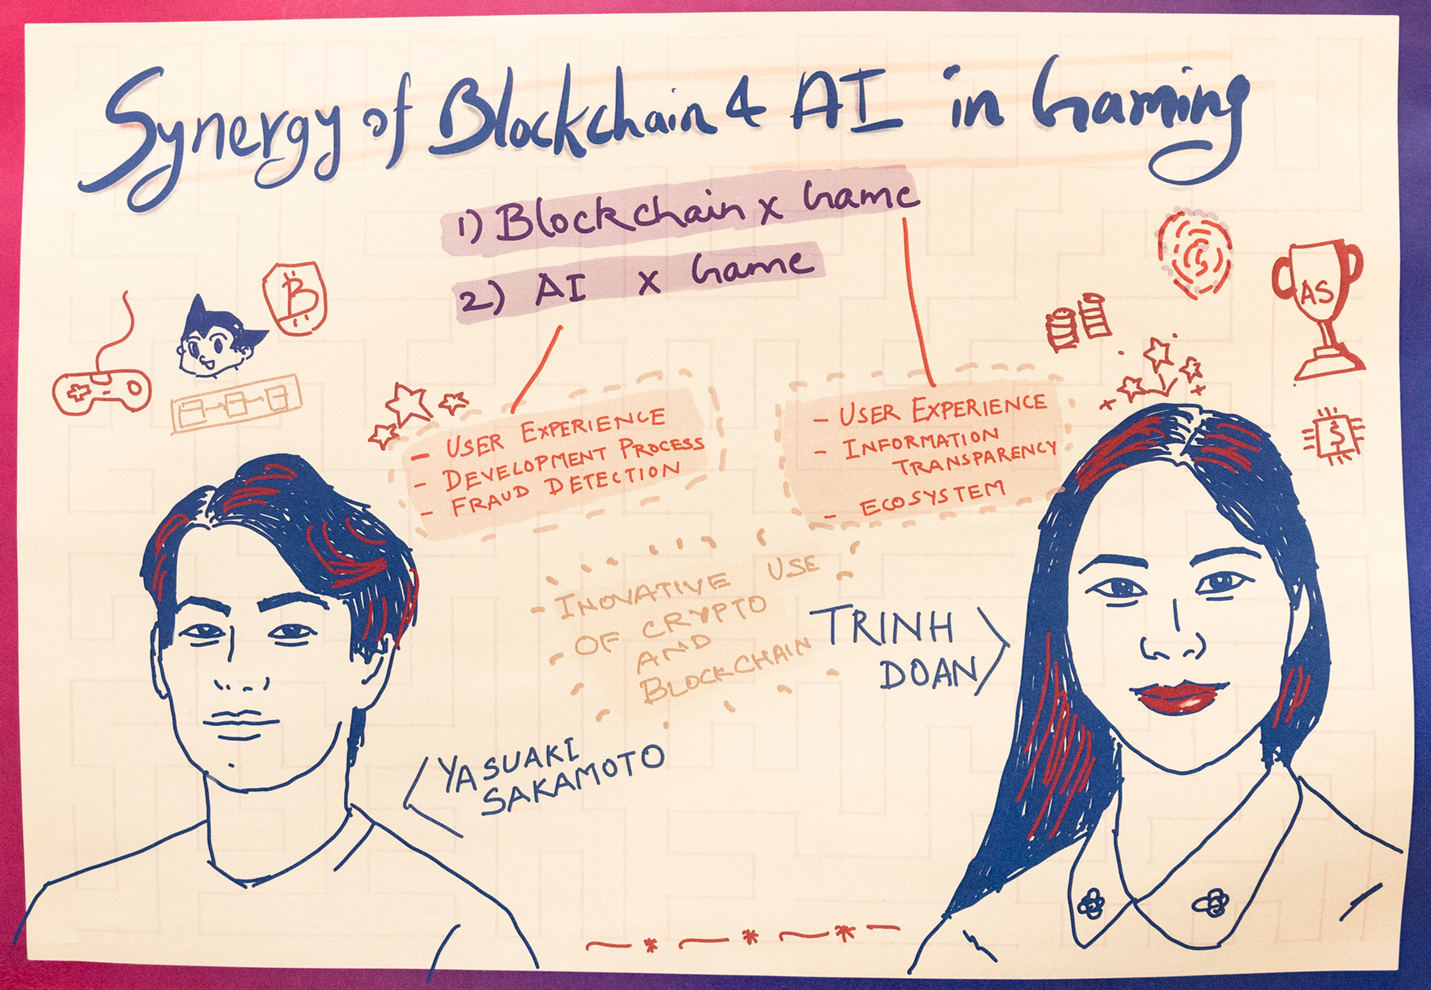 Synergy of Blockchain & AI in Gaming
1) Blockchain x Game
2) AI x Game
B
AS
$
- USER EXPERIENCE
- DEVELOPMENT PROCESS
- FRAUD DETECTION
- USER EXPERIENCE
- INFORMATION
TRANSPARENCY
- ECOSYSTEM
- INOVATIVE USE
OF CRYPTO
AND
BLOCKCHAIN
TRINH
DOAN
YASUAKI
SAKAMOTO